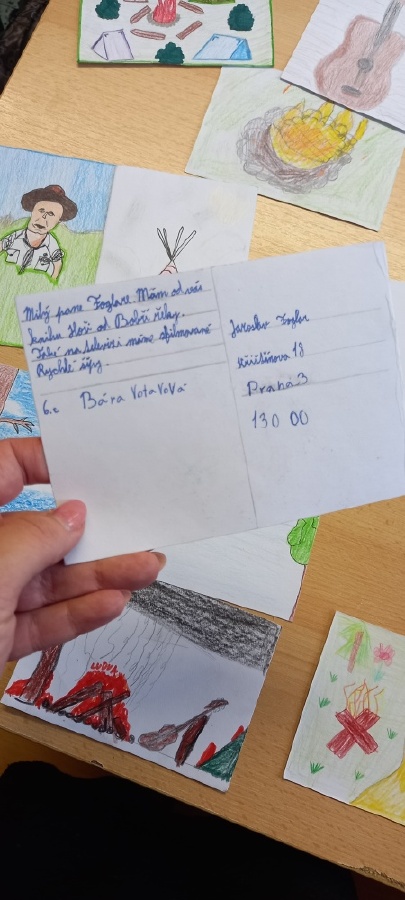 Milý pane Foglare Mám od vás
knihu Hoši od Bobří řeky.
Také na televizi máme zfilmované
Rychlé šípy.
6.c Bára Votavová
Jaroslav Foglar
Křišťínova 18
Praha 3
130 00